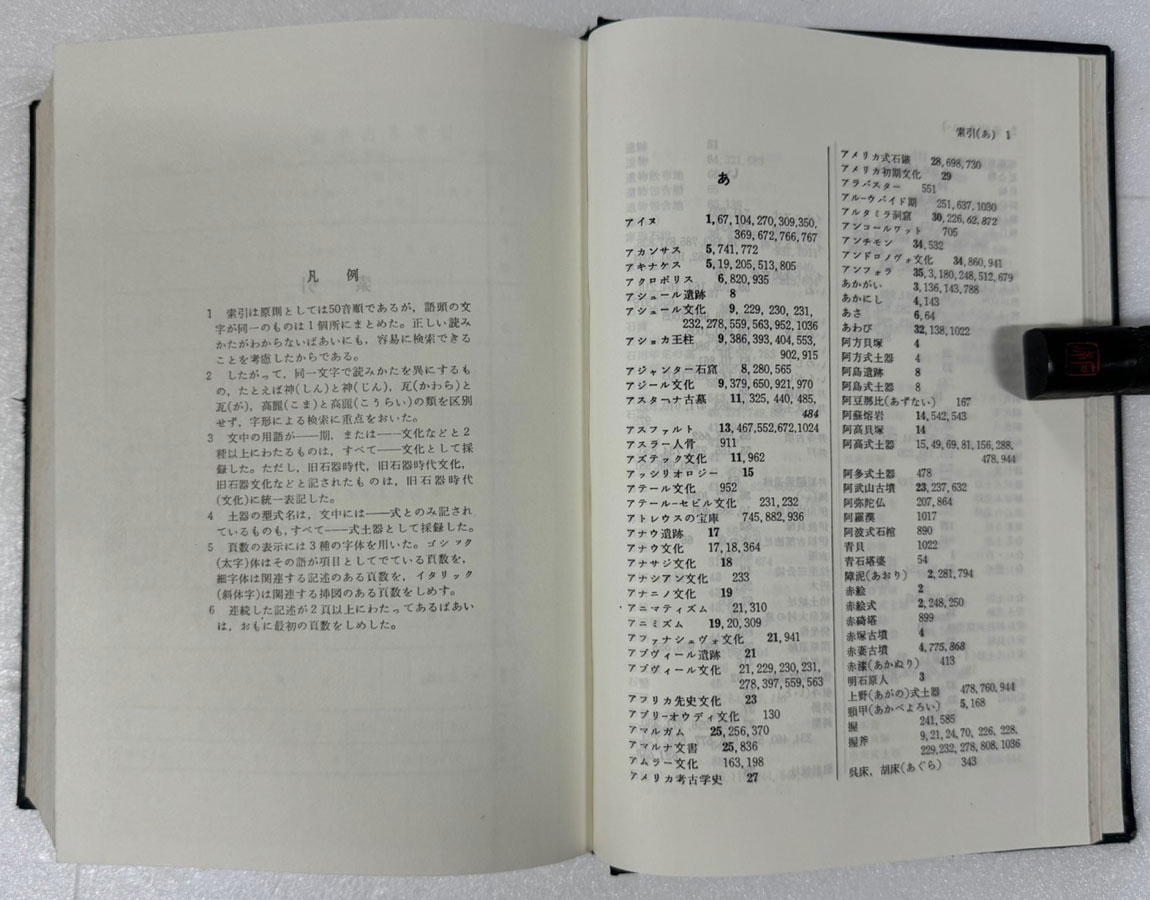 凡例
1 索引は原則としては50音順であるが，語頭の文
字が同一のものは1個所にまとめた。正しい読み
かたがわからないばあいにも，容易に検索できる
ことを考慮したからである。
2 したがって，同一文字で読みかたを異にするも
の，たとえば神(しん)と神(じん)，瓦(かわら)と
瓦(が)，高麗(こま)と高麗(こうらい)の類を区別
せず，字形による検索に重点をおいた。
3 文中の用語が――期，または――文化などと2
種以上にわたるものは，すべて――文化として採
録した。ただし，旧石器時代，旧石器時代文化，
旧石器文化などと記されたものは，旧石器時代
(文化)に統一表記した。
4 土器の型式名は，文中には――式とのみ記され
ているものも，すべて――式土器として採録した。
5 頁数の表示には3種の字体を用いた。ゴシック
(太字)体はその語が項目としてでている頁数を，
細字体は関連する記述のある頁数を，イタリック
(斜体字)は関連する挿図のある頁数をしめす。
6 連続した記述が2頁以上にわたってあるばあい
は，おもに最初の頁数をしめした。
索引(あ) 1
あ
アイヌ 1,67,104,270,309,350,
369,672,766,767
アカンサス 5,741,772
アキナケス 5,19,205,513,805
アクロポリス 6,820,935
アシュール遺跡 8
アシュール文化 9,229,230,231,
232,278,559,563,952,1036
アショカ王柱 9,386,393,404,553,
902,915
アジャンター石窟 8,280,565
アジール文化 9,379,650,921,970
アスターナ古墓 11,325,440,485,
484
アスファルト 13,467,552,672,1024
アスラー人骨 911
アズテック文化 11,962
アッシリオロジー 15
アテール文化 952
アテール-セビル文化 231,232
アトレウスの宝庫 745,882,936
アナウ遺跡 17
アナウ文化 17,18,364
アナサジ文化 18
アナシアン文化 233
アナニノ文化 19
アニマティズム 21,310
アニミズム 19,20,309
アファナシェヴォ文化 21,941
アブヴィール遺跡 21
アブヴィール文化 21,229,230,231,
278,397,559,563
アフリカ先史文化 23
アブリ-オウディ文化 130
アマルガム 25,256,370
アマルナ文書 25,836
アムラー文化 163,198
アメリカ考古学史 27
アメリカ式石鏃 28,698,730
アメリカ初期文化 29
アラバスター 551
アル-ウバイド期 251,637,1030
アルタミラ洞窟 30,226,62,872
アンコールワット 705
アンチモン 34,532
アンドロノヴォ文化 34,860,941
アンフォラ 35,3,180,248,512,679
あかがい 3,136,143,788
あかにし 4,143
あさ 6,64
あわび 32,138,1022
阿方貝塚 4
阿方式土器 4
阿島遺跡 8
阿島式土器 8
阿豆那比(あずない) 167
阿蘇熔岩 14,542,543
阿高貝塚 14
阿高式土器 15,49,69,81,156,288,
478,944
阿多式土器 478
阿武山古墳 23,237,632
阿弥陀仏 207,864
阿羅漢 1017
阿波式石棺 890
青貝 1022
青石塔婆 54
障泥(あおり) 2,281,794
赤絵 2
赤絵式 2,248,250
赤碕塔 899
赤塚古墳 4
赤妻古墳 4,775,868
赤漆(あかぬり) 413
明石原人 3
上野(あがの)式土器 478,760,944
頸甲(あかべよろい) 5,168
握 241,585
握斧 9,21,24,70,226,228,
229,232,278,808,1036
呉床，胡床(あぐら) 343